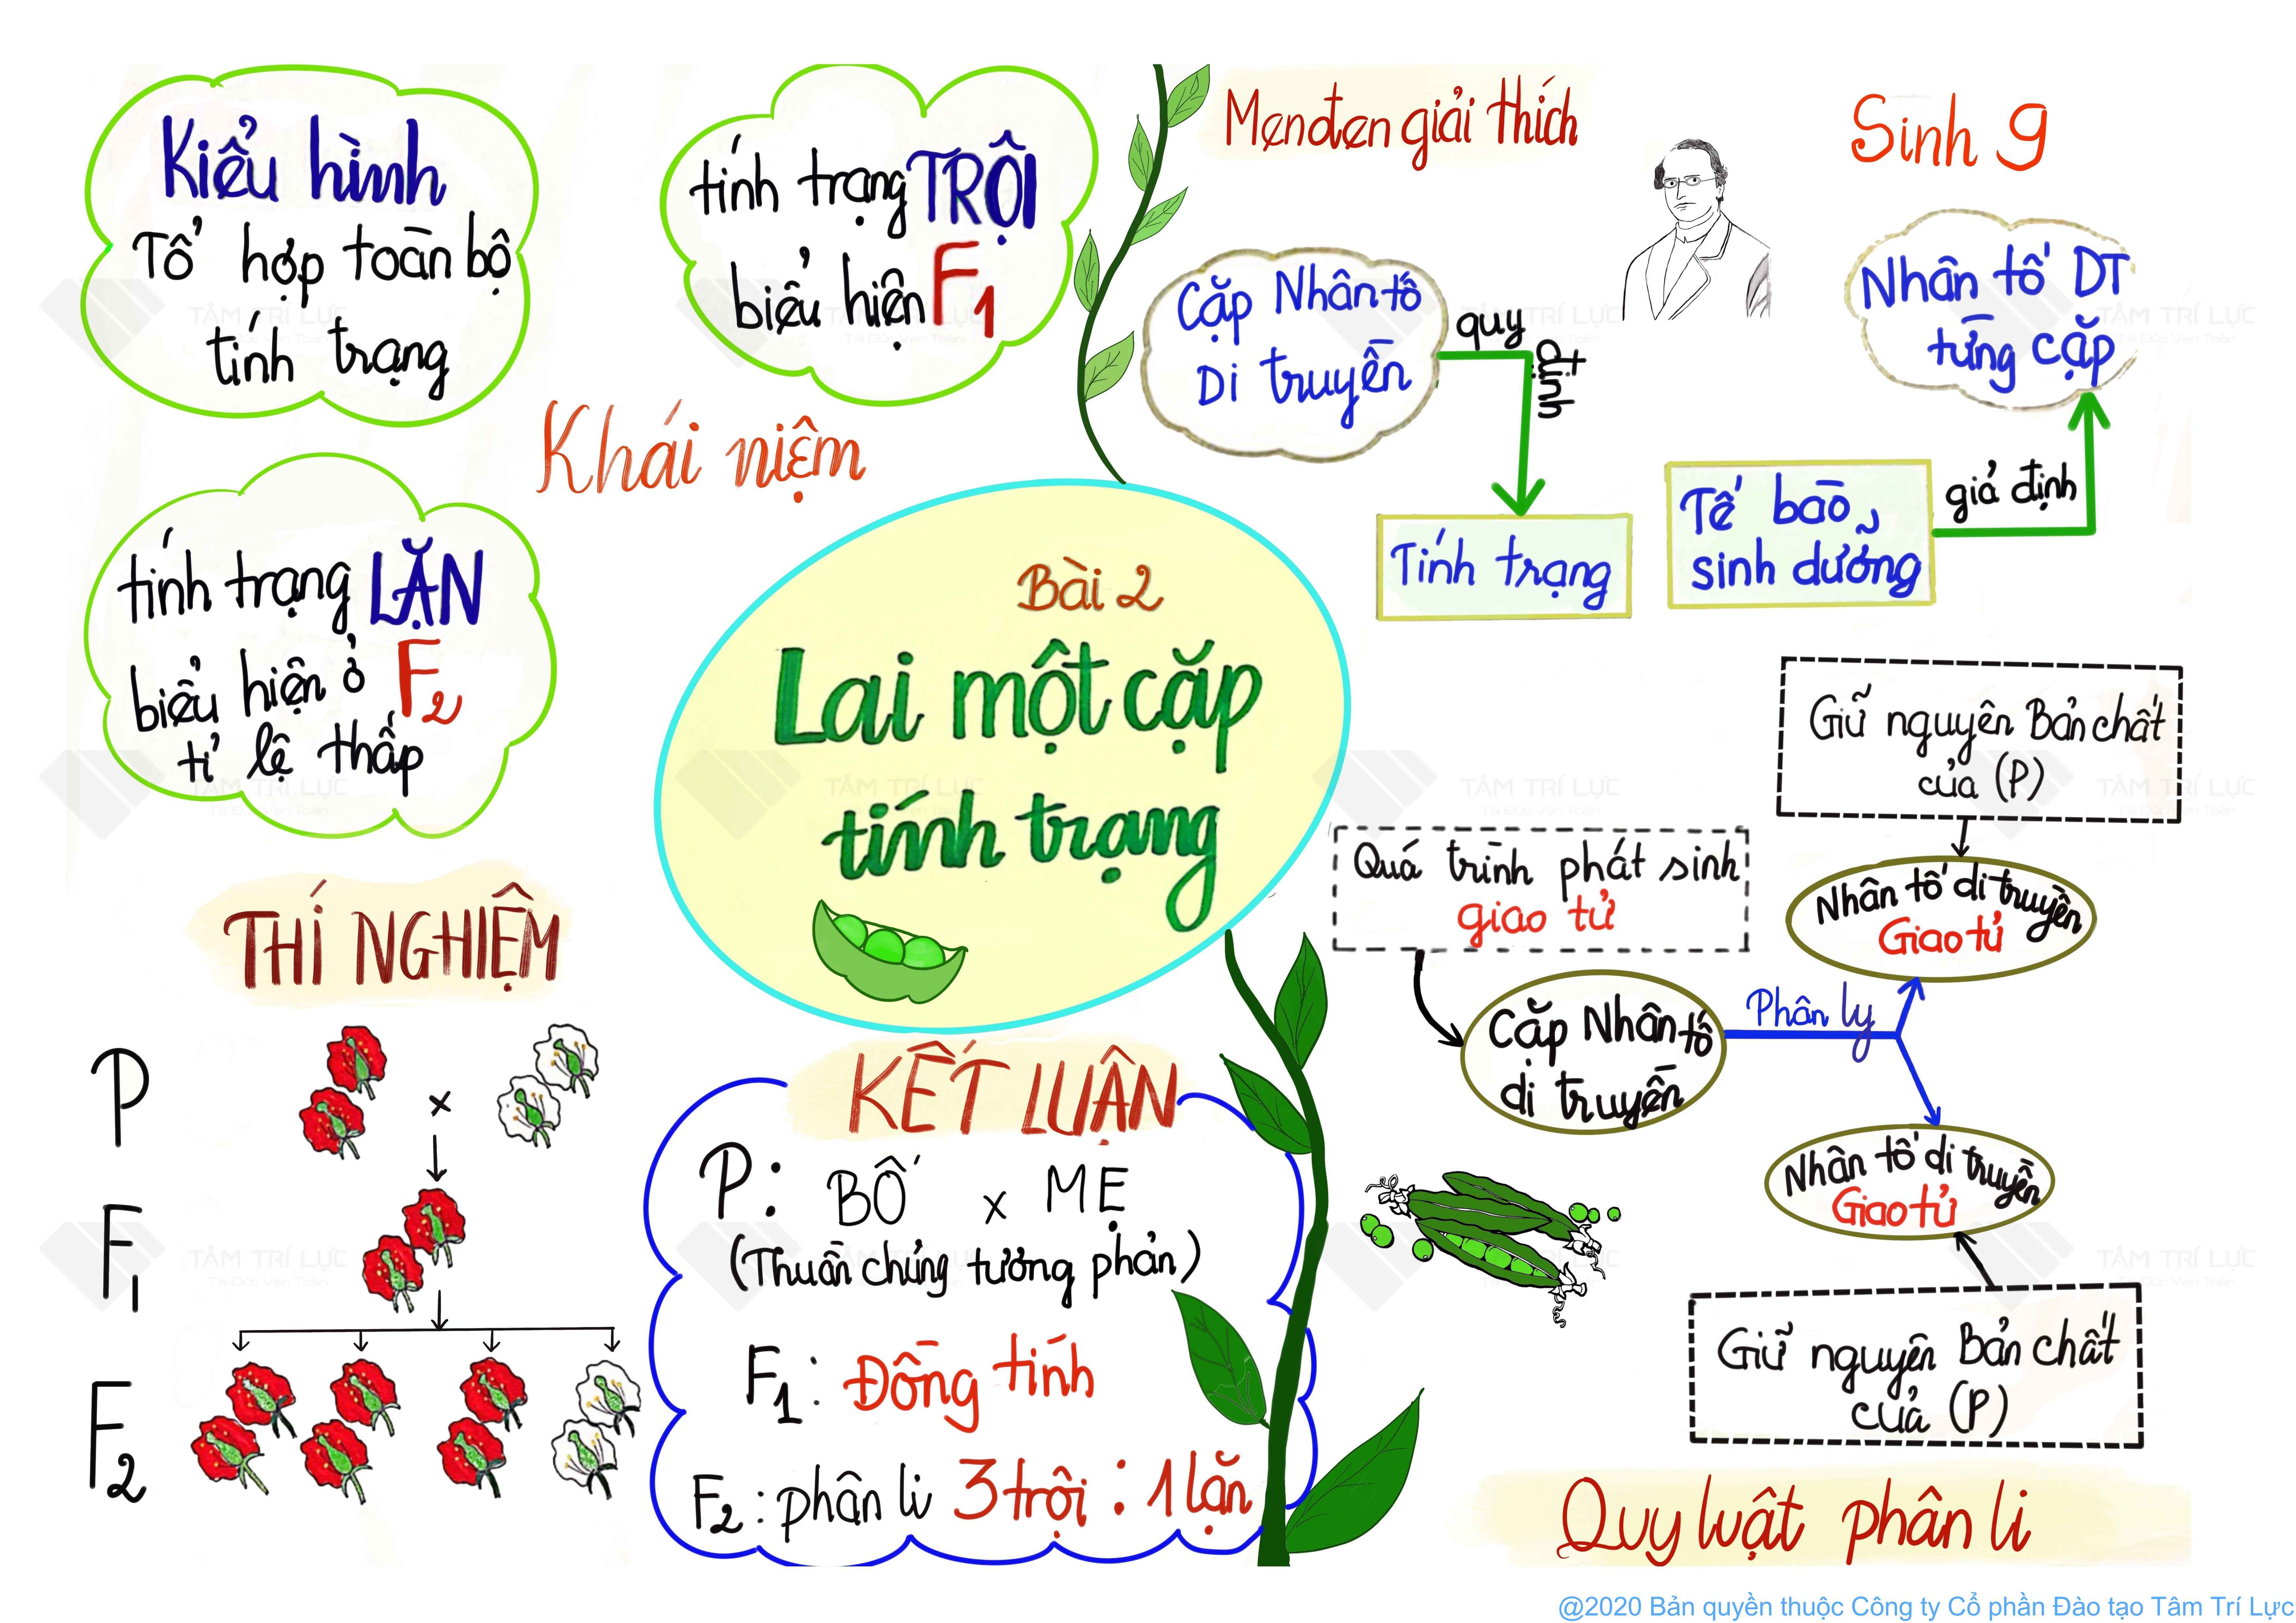 Sinh 9
Bài 2
Lai một cặp
tính trạng
Khái niệm
Kiểu hình
Tổ hợp toàn bộ
tính trạng
tính trạng TRỘI
biểu hiện F1
tính trạng LẶN
biểu hiện ở F2
tỉ lệ thấp
THÍ NGHIỆM
P
x
F1
F2
KẾT LUẬN
P: BỐ x MẸ
(Thuần chủng tương phản)
F1: Đồng tính
F2: phân li 3 trội : 1 lặn
Menđen giải thích
Cặp Nhân tố
Di truyền
quy
định
Tính trạng
Nhân tố DT
từng cặp
giả định
Tế bào
sinh dưỡng
Quá trình phát sinh
giao tử
Cặp Nhân tố
di truyền
Phân ly
Giữ nguyên Bản chất
của (P)
Nhân tố di truyền
Giao tử
Nhân tố di truyền
Giao tử
Giữ nguyên Bản chất
của (P)
Quy luật phân li
TÂM TRÍ LỰC
Tài Đức Vẹn Toàn
@2020 Bản quyền thuộc Công ty Cổ phần Đào tạo Tâm Trí Lực